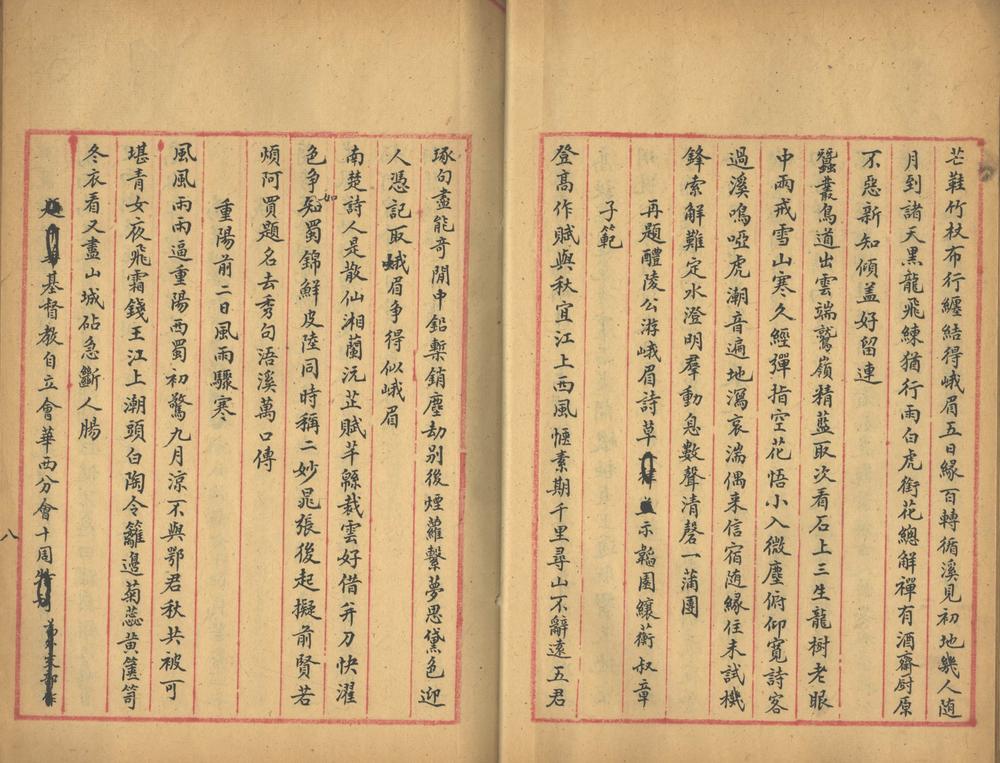 芒鞋竹杖布行纏結得峨眉五日緣百轉循溪見初地幾人隨
月到諸天黑龍飛練猶行雨白虎銜花總解禪有酒齋廚原
不惡新知傾蓋好留連
蠶叢鳥道出雲端鷲嶺精藍取次看石上三生龍樹老眼
中兩戒雪山寒久經彈指空花悟小入微塵俯仰寬詩客
過溪鳴啞虎潮音遍地瀉哀湍偶來信宿随緣住未試機
鋒索解難定水澄明羣動息數聲清磬一蒲團
再題醴陵公游峨眉詩草示韜園鑲蘅叔章
子範
登高作賦與秋宜江上西風愜素期千里尋山不辭遠五君
琢句盡能奇閒中鉛槧銷塵劫别後煙蘿繫夢思黛色迎
人憑記取蛾眉争得似峨眉
南楚詩人是散仙湘蘭沅芷賦芊緜裁雲好借并刀快濯
色争如蜀錦鮮皮陸同時稱二妙晁張後起擬前賢若
煩阿買題名去秀句浯溪萬口傳
重陽前二日風雨驟寒
風風雨雨逼重陽西蜀初驚九月涼不與鄂君秋共被可
堪青女夜飛霜錢王江上潮頭白陶令籬邊菊蕊黄篋笥
冬衣看又盡山城砧急斷人腸
基督教自立會華西分會十周
八